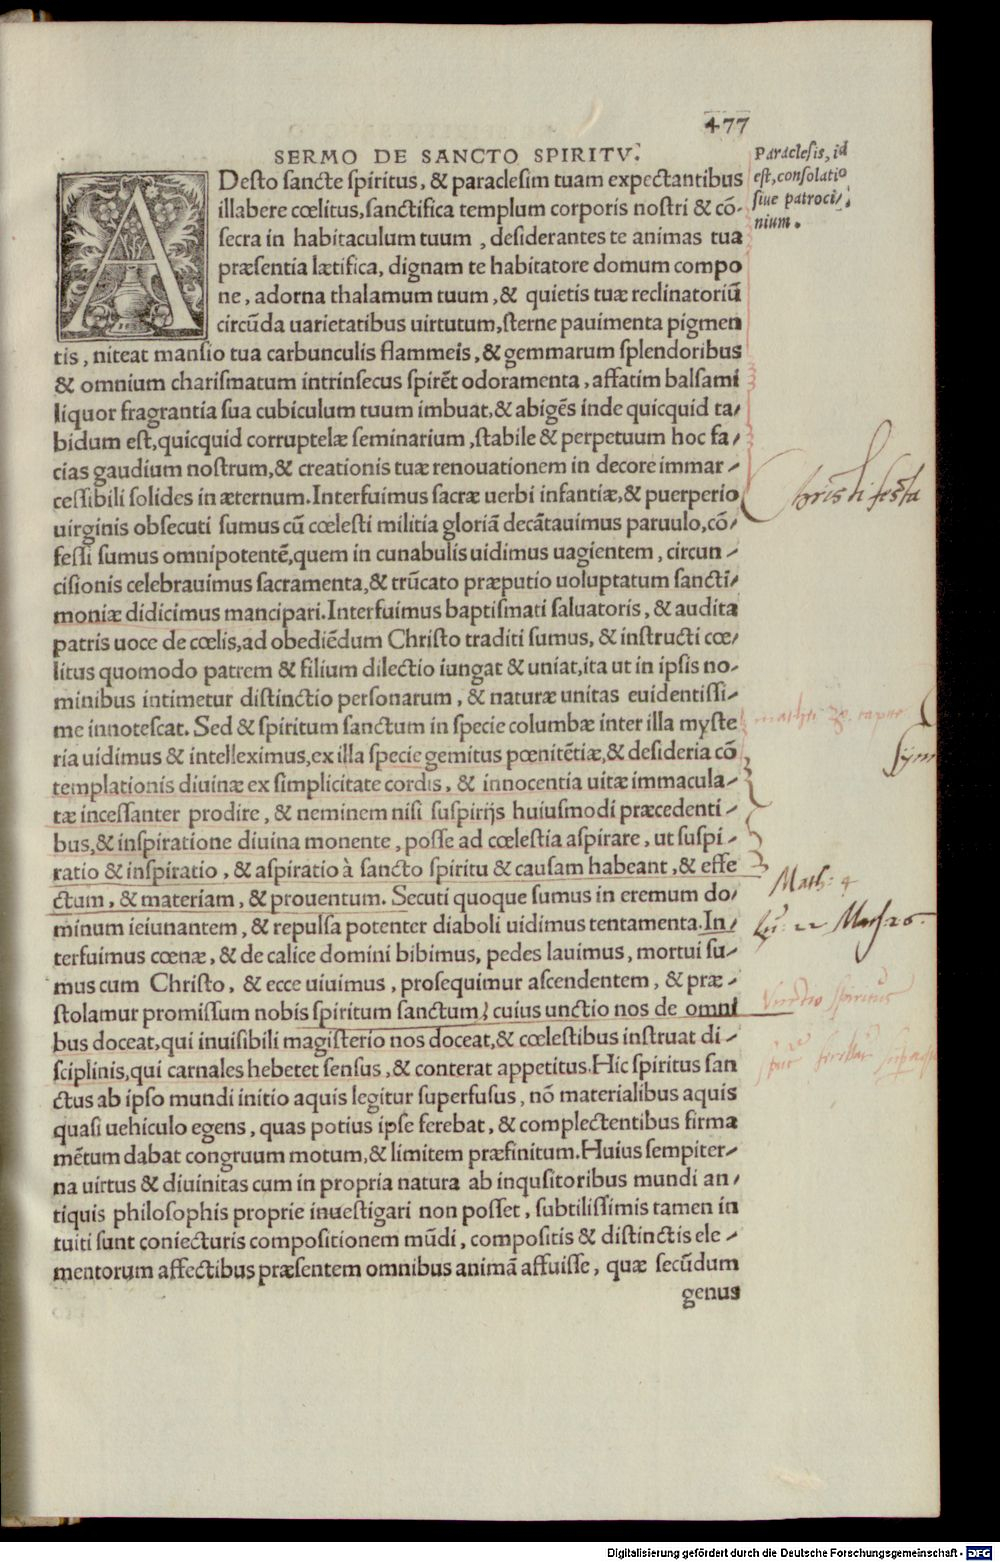 477
SERMO DE SANCTO SPIRITV.
Paraclesis, id
est, consolatio
siue patroci/
nium.
ADesto sancte spiritus, & paraclesim tuam expectantibus
illabere cœlitus, sanctifica templum corporis nostri & cō-
secra in habitaculum tuum, desiderantes te animas tua
præsentia lætifica, dignam te habitatore domum compo
ne, adorna thalamum tuum, & quietis tuæ reclinatoriū
circūda uarietatibus uirtutum, sterne pauimenta pigmen
tis, niteat mansio tua carbunculis flammeis, & gemmarum splendoribus
& omnium charismatum intrinsecus spirēt odoramenta, affatim balsami
liquor fragrantia sua cubiculum tuum imbuat, & abigēs inde quicquid ta/
bidum est, quicquid corruptelæ seminarium, stabile & perpetuum hoc fa/
cias gaudium nostrum, & creationis tuæ renouationem in decore immar-
cessibili solides in æternum. Interfuimus sacræ uerbi infantiæ, & puerperio
uirginis obsecuti sumus cū cœlesti militia gloriā decātauimus paruulo, cō/
fessi sumus omnipotentē, quem in cunabulis uidimus uagientem, circun-
cisionis celebrauimus sacramenta, & trūcato præputio uoluptatum sancti/
moniæ didicimus mancipari. Interfuimus baptismati saluatoris, & audita
patris uoce de cœlis, ad obediēdum Christo traditi sumus, & instructi cœ/
litus quomodo patrem & filium dilectio iungat & uniat, ita ut in ipsis no-
minibus intimetur distinctio personarum, & naturæ unitas euidentissi-
me innotescat. Sed & spiritum sanctum in specie columbæ inter illa myste
ria uidimus & intelleximus, ex illa specie gemitus pœnitētiæ, & desideria cō
templationis diuinæ ex simplicitate cordis, & innocentia uitæ immacula-
tæ incessanter prodire, & neminem nisi suspirijs huiusmodi præcedenti-
bus, & inspiratione diuina monente, posse ad cœlestia aspirare, ut suspi-
ratio & inspiratio, & aspiratio à sancto spiritu & causam habeant, & effe
ctum, & materiam, & prouentum. Secuti quoque sumus in eremum do/
minum ieiunantem, & repulsa potenter diaboli uidimus tentamenta. In/
terfuimus cœnæ, & de calice domini bibimus, pedes lauimus, mortui su-
mus cum Christo, & ecce uiuimus, prosequimur ascendentem, & præ-
stolamur promissum nobis spiritum sanctum, cuius unctio nos de omni
bus doceat, qui inuisibili magisterio nos doceat, & cœlestibus instruat di-
sciplinis, qui carnales hebetet sensus, & conterat appetitus. Hic spiritus san
ctus ab ipso mundi initio aquis legitur superfusus, nō materialibus aquis
quasi uehiculo egens, quas potius ipse ferebat, & complectentibus firma
mētum dabat congruum motum, & limitem præfinitum. Huius sempiter-
na uirtus & diuinitas cum in propria natura ab inqusitoribus mundi an/
tiquis philosophis proprie inuestigari non posset, subtilissimis tamen in
tuiti sunt coniecturis compositionem mūdi, compositis & distinctis ele-
mentorum affectibus præsentem omnibus animā affuisse, quæ secūdum
genus
Christi festa
Math: 4
Unctio spiritus
Digitalisierung gefördert durch die Deutsche Forschungsgemeinschaft - DFG